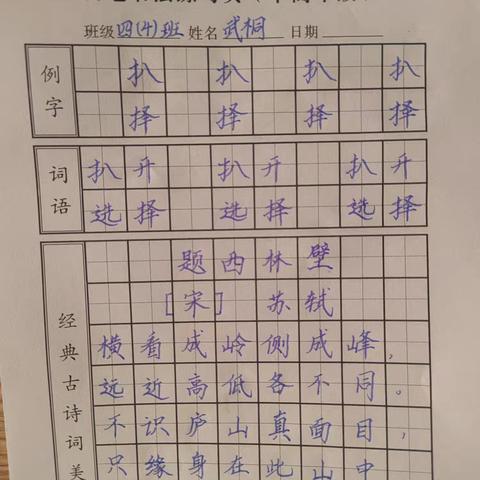 班级 四(4)班 姓名 武桐 日期
例字
扒 扒 扒 扒
择 择 择 择
词语
扒开 扒开 扒开
选择 选择 选择
经典古诗词美
题西林壁
[宋] 苏轼
横看成岭侧成峰,
远近高低各不同。
不识庐山真面目,
只缘身在此山中